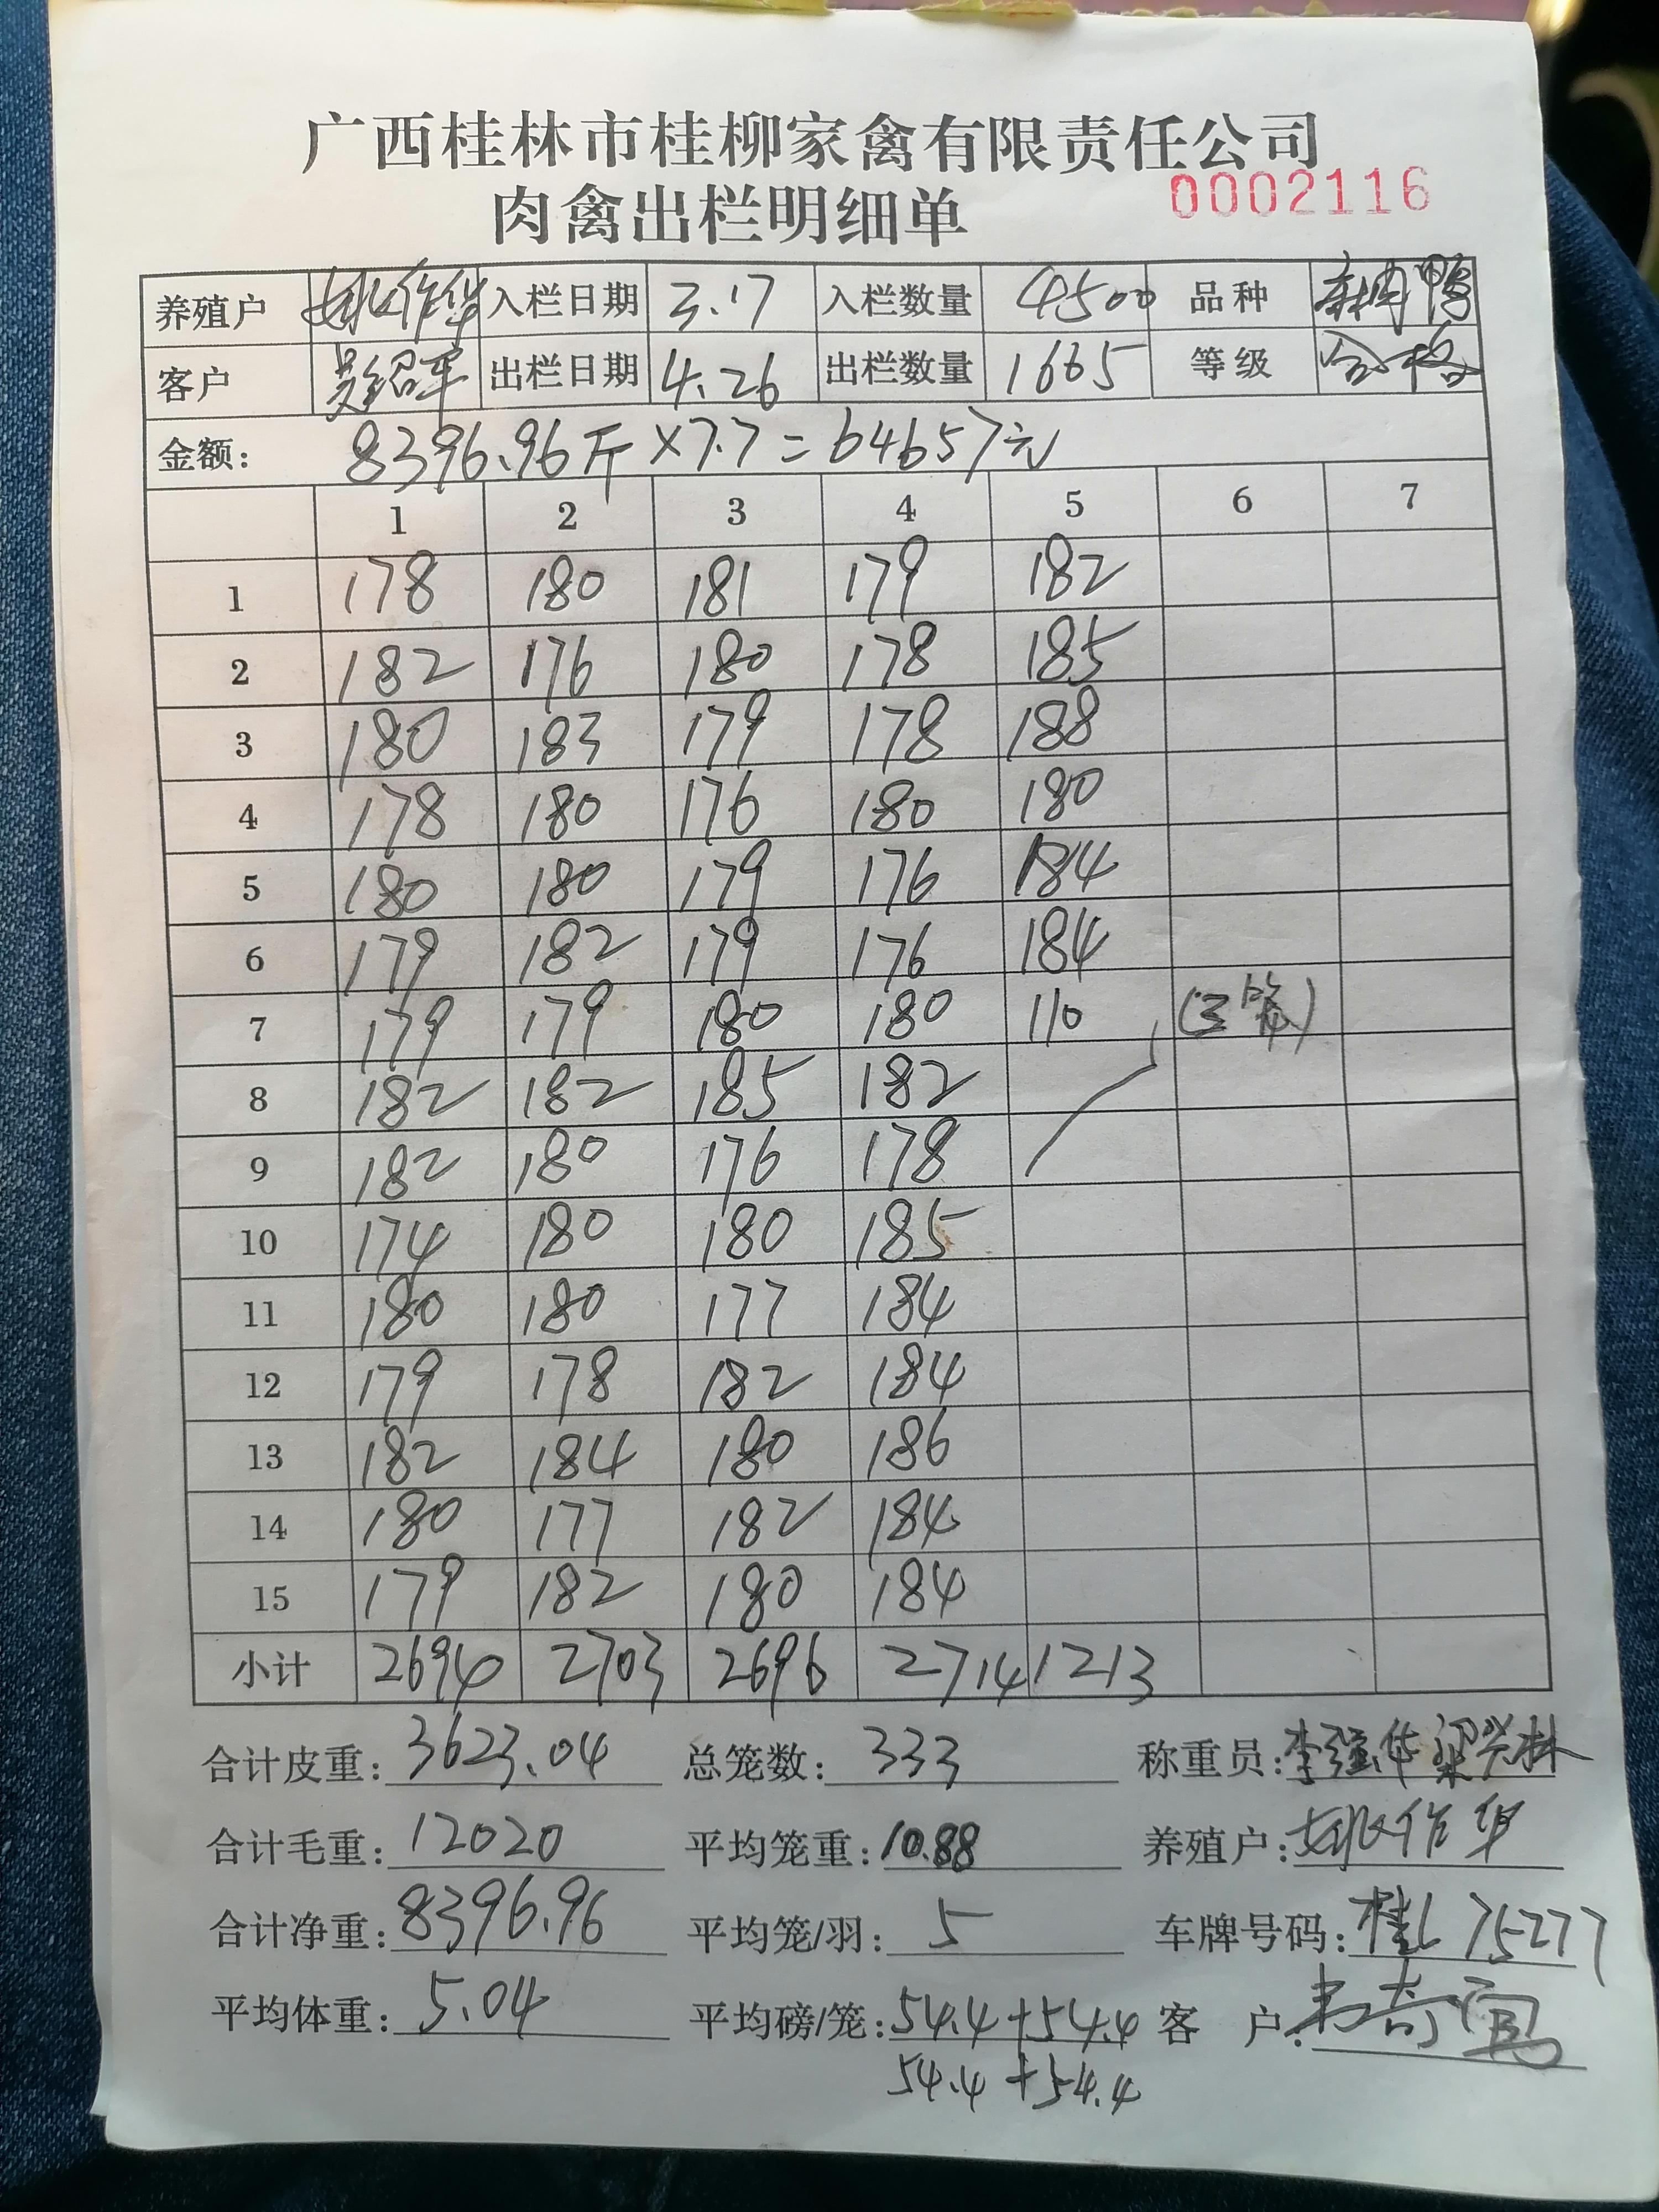 广西桂林市桂柳家禽有限责任公司
肉禽出栏明细单 0002116
养殖户 姚作华 入栏日期 3.17 入栏数量 4500 品种 麻鸭
客户 吴绍军 出栏日期 4.26 出栏数量 1665 等级 合格
金额: 8396.96斤×7.7=64657元
1 2 3 4 5 6 7
1 178 180 181 179 182
2 182 176 180 178 185
3 180 183 179 178 188
4 178 180 176 180 180
5 180 180 179 176 184
6 179 182 179 176 184
7 179 179 180 180 110 (三笼)
8 182 182 185 182
9 182 180 176 178
10 174 180 180 185
11 180 180 177 184
12 179 178 182 184
13 182 184 180 186
14 180 177 182 184
15 179 182 180 184
小计 2694 2703 2696 2714 1213
合计皮重: 3623.04 总笼数: 333 称重员: 李强华 梁兴林
合计毛重: 12020 平均笼重: 10.88 养殖户: 姚作华
合计净重: 8396.96 平均笼/羽: 5 车牌号码: 桂L 75277
平均体重: 5.04 平均磅/笼: 54.4+54.4 客 户:
54.4+54.4